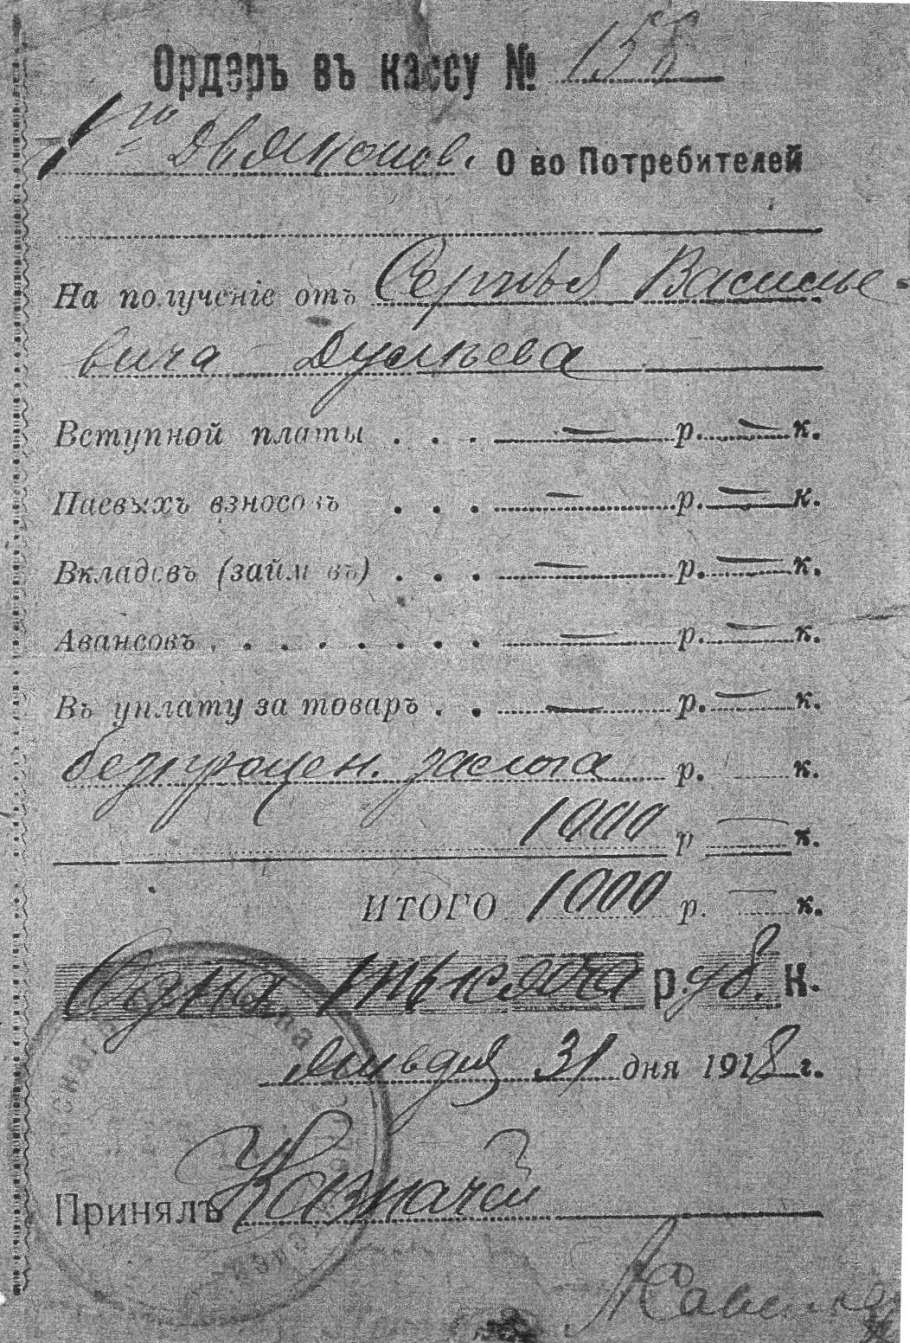 Ордеръ въ кассу № 158
1го Дьяконов. О во Потребителей
На полученіе отъ Сергѣя Василье-
вича Дулѣева
Вступной платы . . . — р. — к.
Паевыхъ взносовъ . . . — р. — к.
Вкладовъ (займовъ) . . . — р. — к.
Авансовъ . . . . . . . . — р. — к.
Въ уплату за товаръ . . — р. — к.
безпроцен. заема р. к.
1000 р — к.
ИТОГО 1000 р. — к.
Одна тысяча р.уб. к.
Января 31 дня 1918 г.
Принялъ Казначей